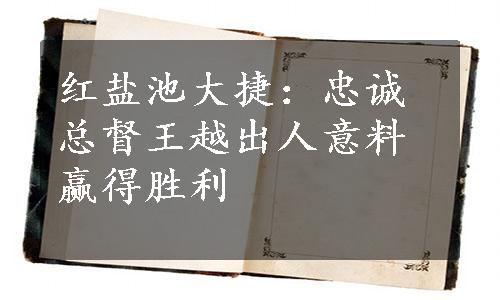 红盐池大捷：忠诚
总督王越出人意料
赢得胜利